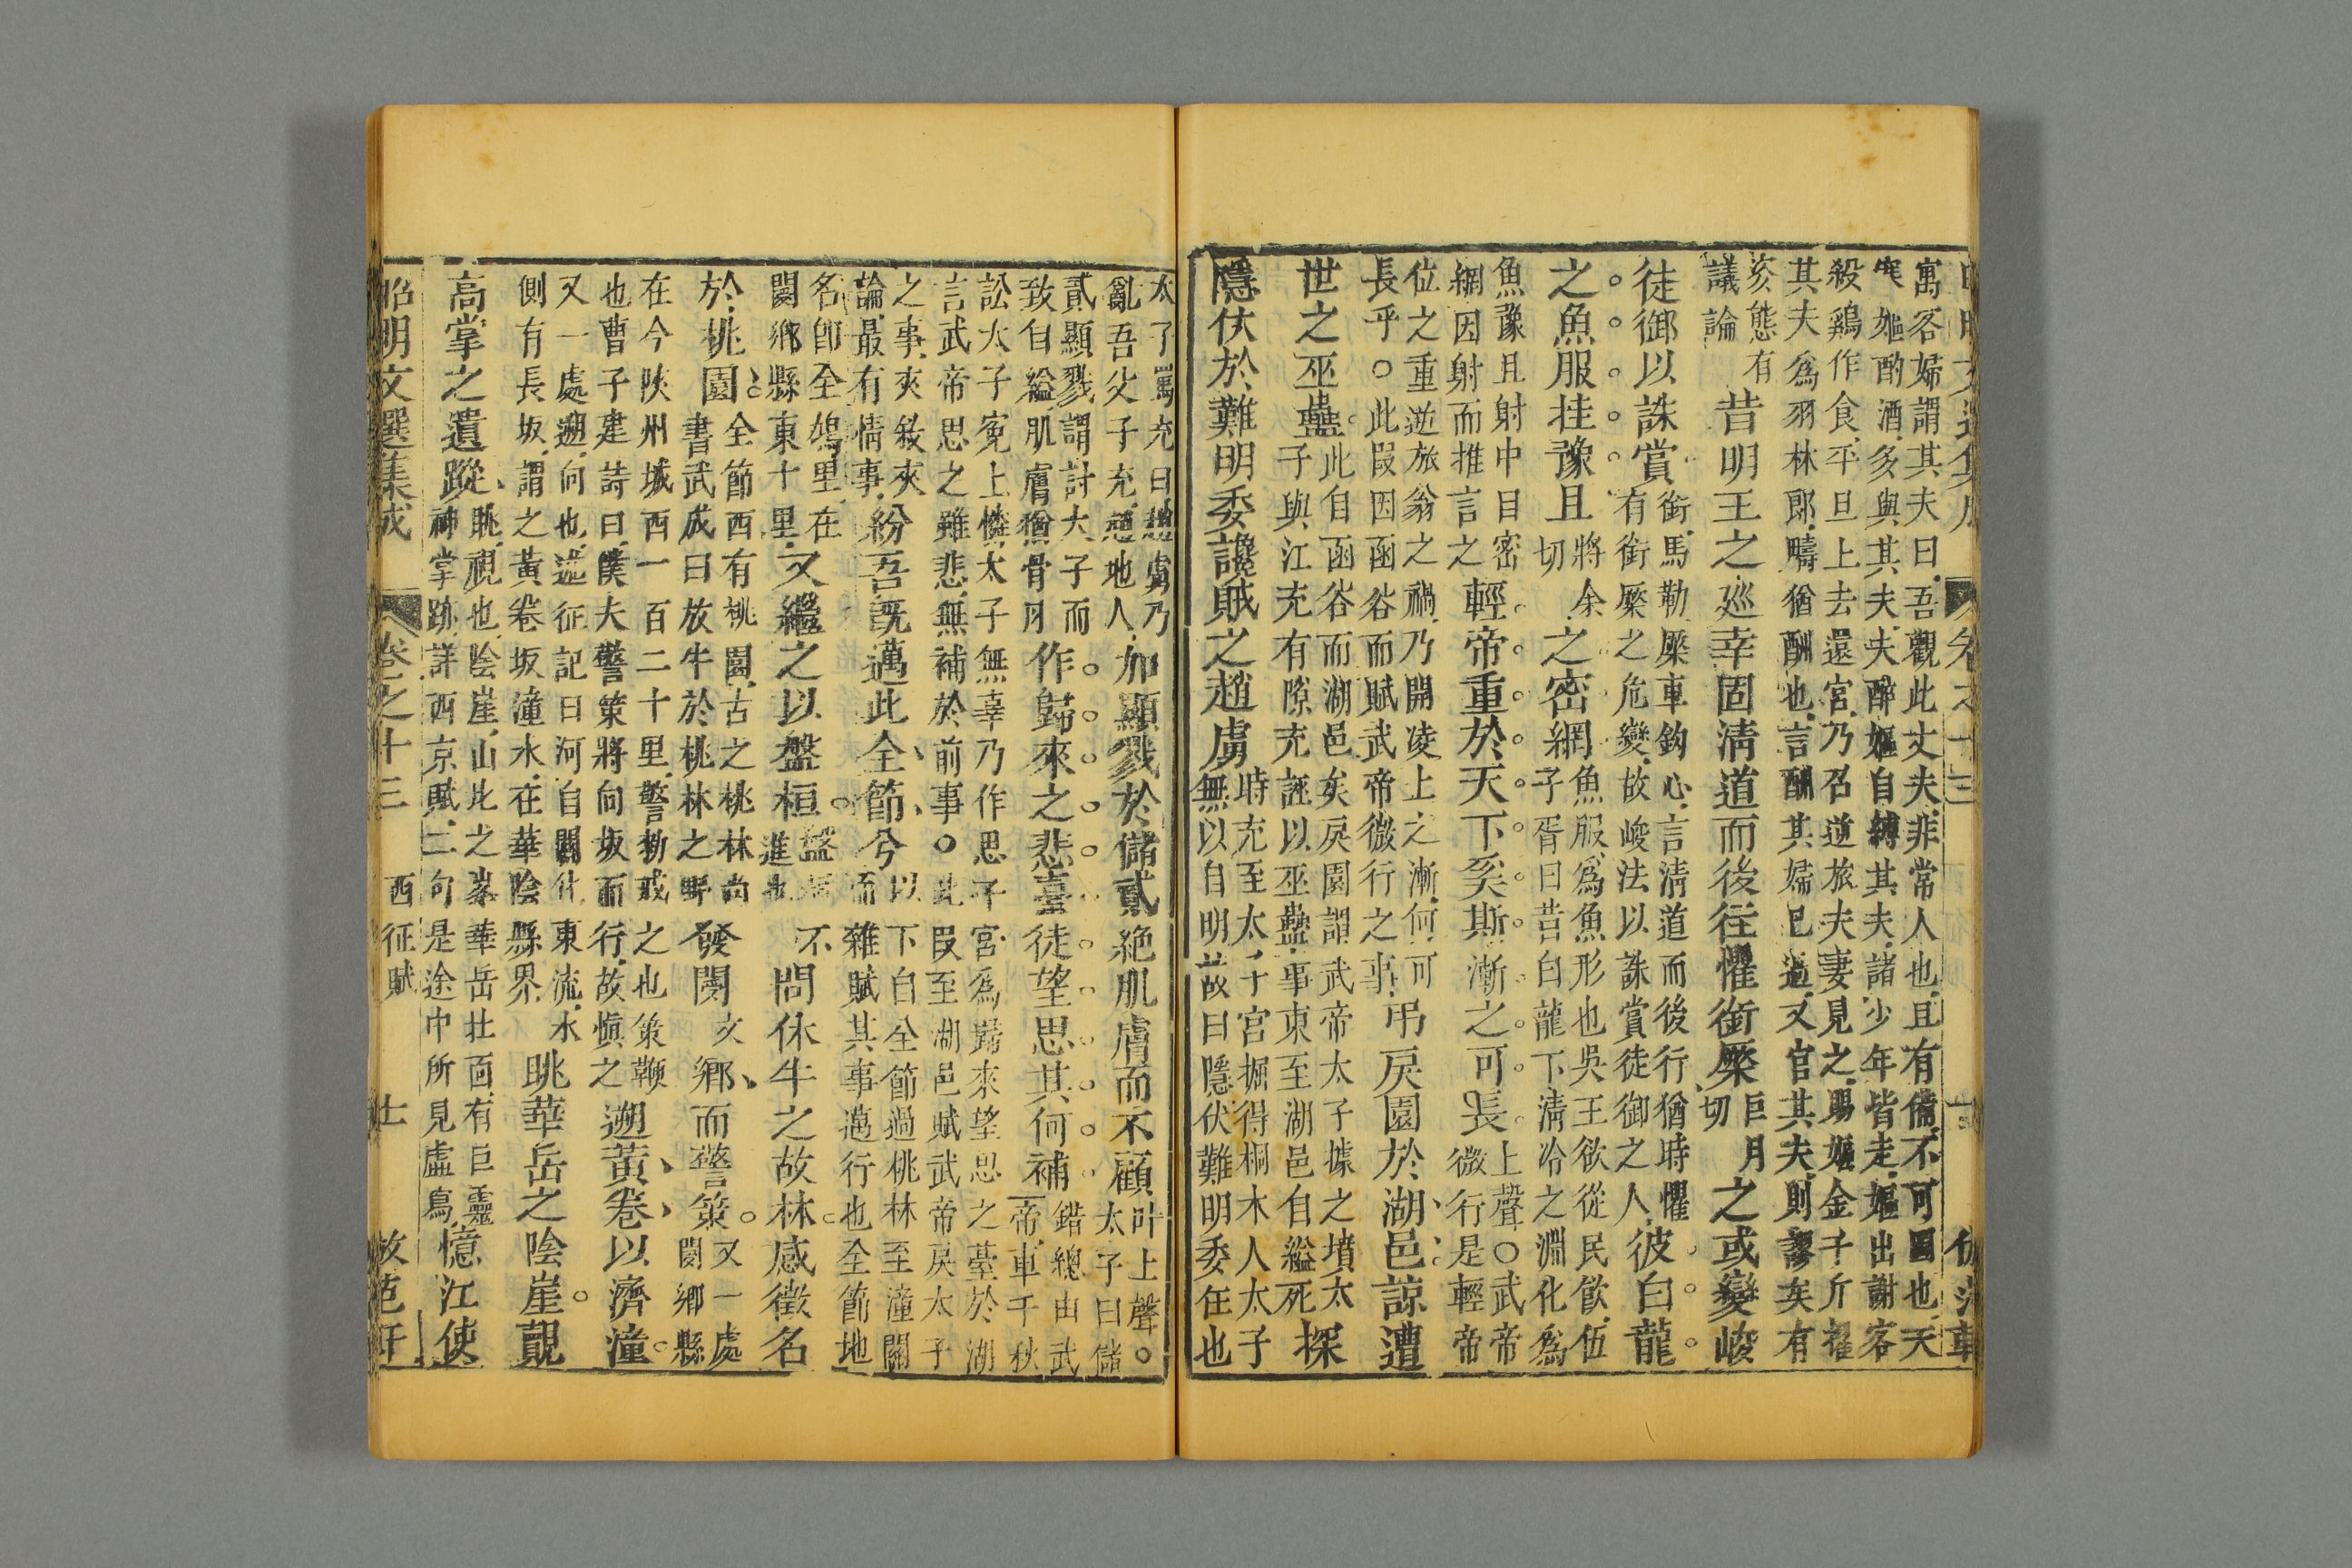 卷之十三
寓客婦謂其夫曰吾觀此丈夫非常人也且有備不可圖也天
寒嫗酌酒多與其夫夫醉嫗自縛其夫諸少年皆走嫗出謝客
殺鷄作食平旦上去還宮乃召逆旅夫妻見之賜嫗金千斤擢
其夫爲羽林郎疇猶酬也言酬其婦已過又官其夫則謬矣有
亥態有議論昔明王之巡幸固淸道而後往懼銜橛巨月切之或變峻
徒御以誅賞銜馬勒橛車鈎心言淸道而後行猶時懼有銜橛之危變故峻法以誅賞徒御之人彼白龍
之魚服挂豫且將余切之密網魚服爲魚形也吳王欲從民飮伍子胥曰昔白龍下淸冷之淵化爲
魚豫且射中目密網因射而推言之輕帝重於天下奚斯漸之可長上聲○武帝微行是輕帝
位之重逆旅翁之禍乃開凌上之漸何可長乎○此段因函谷而賦武帝微行之事弔戾園於湖邑諒遭
世之巫蠱此自函谷而湖邑矣戾園謂武帝太子據之墳太子與江充有隙充誣以巫蠱事東至湖邑自縊死探
隱伏於難明委讒賊之趙虜時充至太子宮掘得桐木人太子無以自明故曰隱伏難明委任也
太子罵充曰趙虜乃亂吾父子充趙地人加顯戮於儲貳絕肌膚而不顧叶上聲○太子曰儲
貳顯戮謂討太子而致自縊肌膚猶骨月作歸來之悲臺徒望思其何補錯總由武帝車千秋
訟太子寃上憐太子無辜乃作思子宮爲歸來望思之薹於湖言武帝思之雖悲無補於前事○此段至湖邑賦武帝戾太子
之事夾敘夾論最有情事紛吾旣邁此全節兮以下自全節過桃林至潼關而雜賦其事邁行也全節地
名卽全鳩里在閿鄉縣東十里又繼之以盤桓盤桓不進也問休牛之故林感徵名
於桃園全節西有桃園古之桃林尚書武成曰放牛於桃林之野發閿文鄉而警策又一處閿鄉縣
在今陜州城西一百二十里警勑戒之也策鞭也曹子建詩曰僕夫警策將向坂而行故愼之遡黃卷以濟潼
又一處遡向也述征記曰河自關北東流水側有長坂謂之黃卷坂潼水在華陰縣界眺華岳之陰崖覿
高掌之遺蹤眺視也陰崖山北之峯華岳壯面有巨靈神掌跡詳西京賦二句是途中所見虛寫憶江使
昭明文選集成 卷之十三 西征賦 士